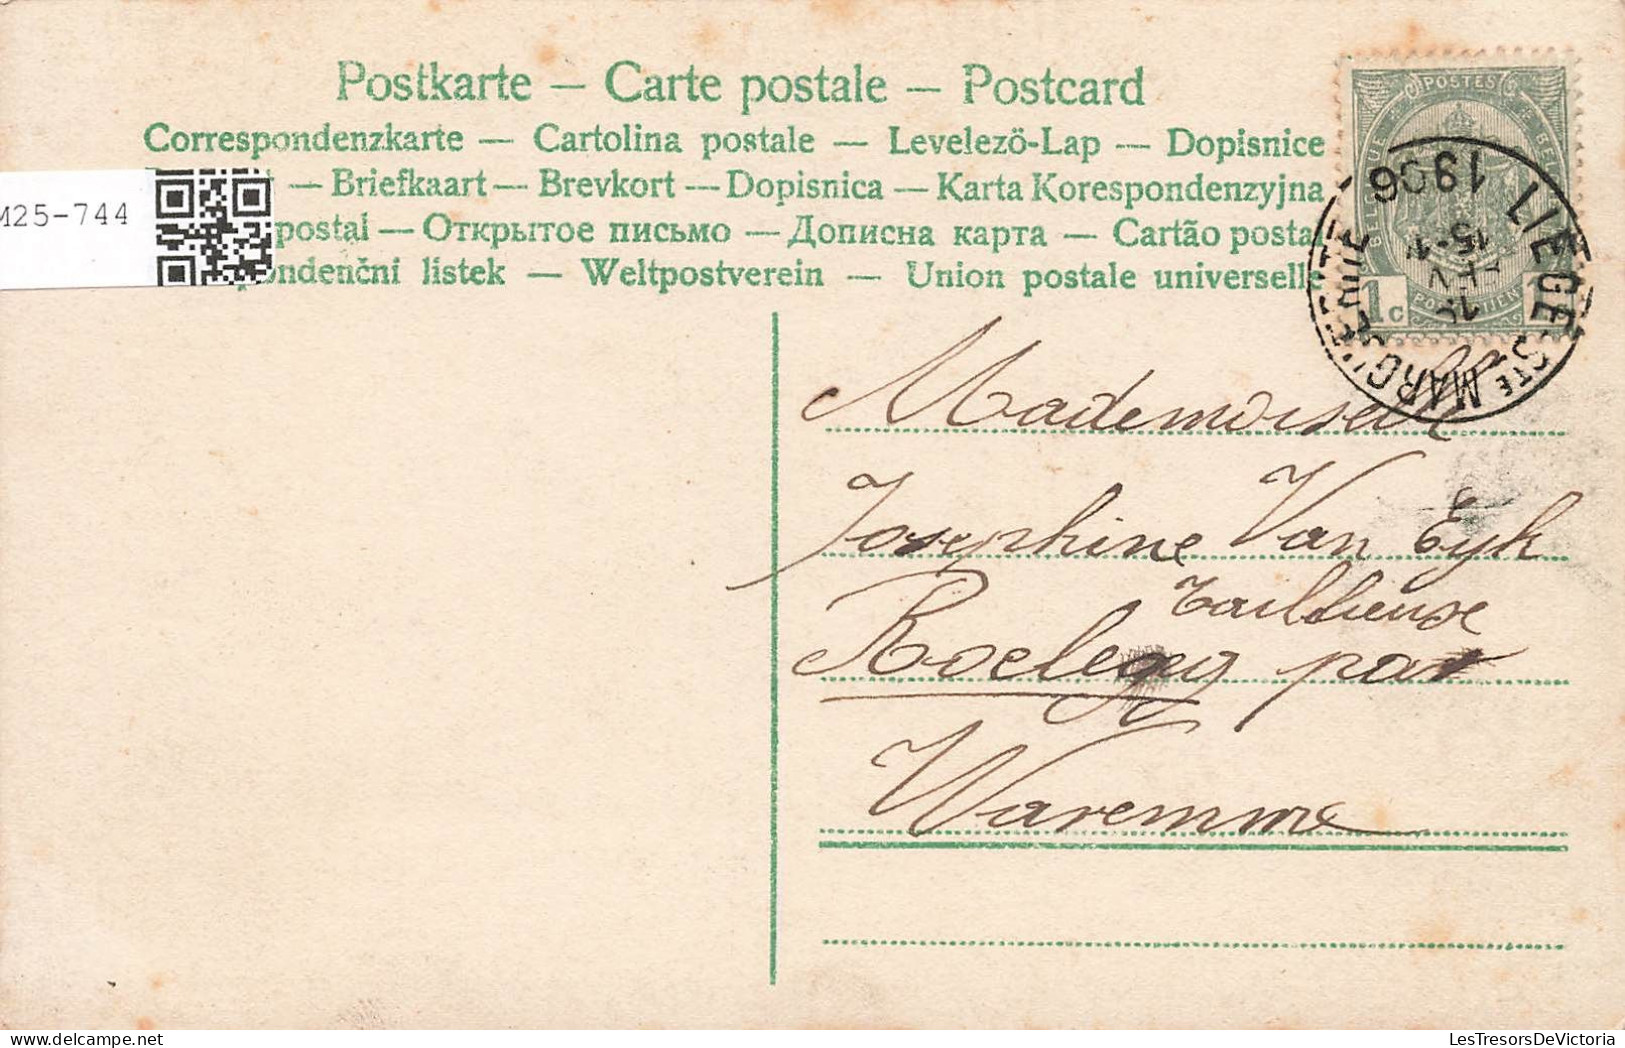 Postkarte — Carte postale — Postcard
Correspondenzkarte — Cartolina postale — Levelezö-Lap — Dopisnice
— Briefkaart — Brevkort — Dopisnica — Karta Korespondenzyjna
M25-744
postal — Открытое письмо — Дописна карта — Cartão postal
ondenční listek — Weltpostverein — Union postale universelle
POSTES
BELGIQUE
1c
LIEGE-STE MARGUERITE
15-1
1906
Mademoiselle
Josephine Van Eyk
Tailleuse
Roelengg par
Waremme
LesTresorsDeVictoria